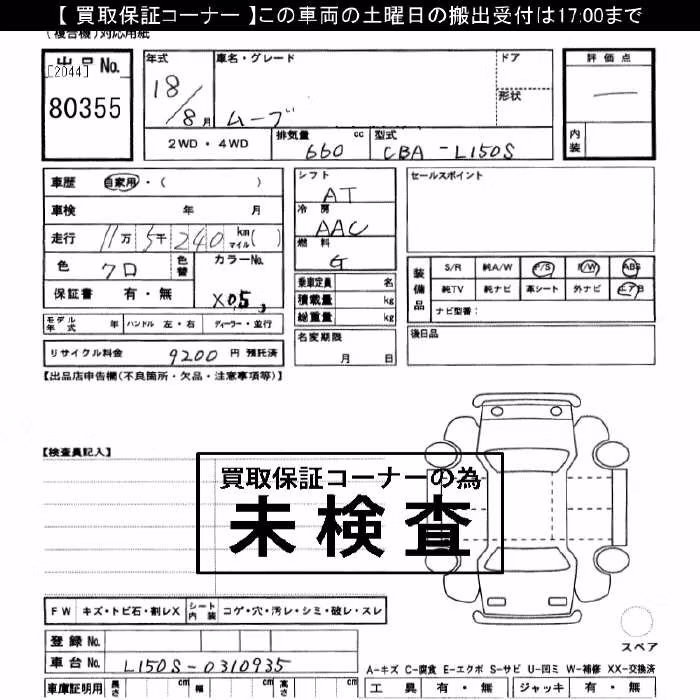 【 買取保証コーナー 】この車両の土曜日の搬出受付は17:00まで
(複合機)対応用紙
出品 No.
[2044]
80355
年式
18/8月
車名・グレード
ムーブ
ドア
形状
評価点
内装
2WD・4WD
排気量 cc
660
型式
CBA-L150S
車歴 自家用・( )
車検 年 月
走行 11万5千240 km マイル( )
色 クロ
色替
カラーNo.
X05
保証書 有・無
モデル年式 年 ハンドル 左・右 ディーラー・並行
リサイクル料金 9200 円 預託済
シフト
AT
冷房
AAC
燃料
G
乗車定員 名
積載量 kg
総重量 kg
名変期限
月 日
セールスポイント
装備品
S/R 純A/W P/S P/W ABS
純TV 純ナビ 革シート 外ナビ エアB
ナビ型番:
後日品
【出品店申告欄(不良箇所・欠品・注意事項等)】
【検査員記入】
買取保証コーナーの為
未検査
FW キズ・トビ石・割レX
シート内装 コゲ・穴・汚レ・シミ・破レ・スレ
登録 No.
車台 No. L150S-0310935
車庫証明用 長さ cm 幅 cm 高さ cm
スペア
A-キズ C-腐食 E-エクボ S-サビ U-凹ミ W-補修 XX-交換済
工具 有・無 ジャッキ 有・無